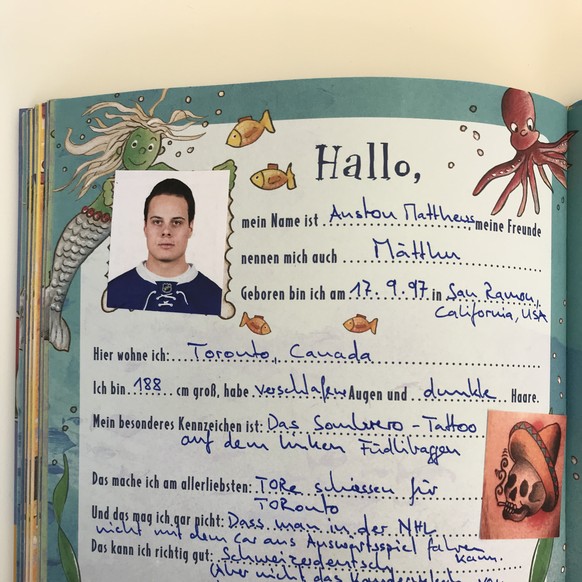 Hallo,
mein Name ist Auston Matthews, meine Freunde
nennen mich auch Mätthu
Geboren bin ich am 17.9.97 in San Ramon,
California, USA
Hier wohne ich: Toronto, Canada
Ich bin 188 cm groß, habe verschlafene Augen und dunkle Haare.
Mein besonderes Kennzeichen ist: Das Sombrero-Tattoo
auf dem linken Füdlibaggen
Das mache ich am allerliebsten: TORe schiessen für
TORonto
Und das mag ich gar nicht: Dass man in der NHL
nicht mit dem Car ans Auswärtsspiel fahren
kann.
Das kann ich richtig gut: Schweizerdeutsch,
aber nicht das